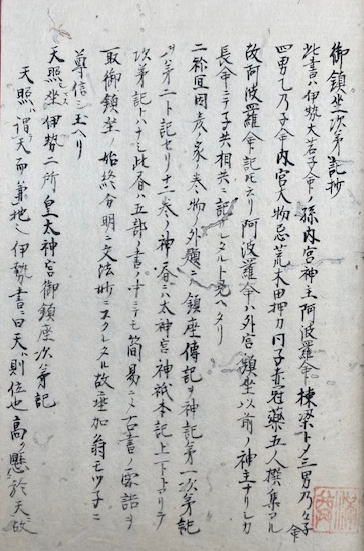 御鎮坐次第記抄
此書ハ伊勢大若子命ノ孫内宮神主阿波羅命棟梁トメ三男乃々子命
四男乙乃子命内宮大物忌荒木田押刀同子赤冠藥五人撰集アル
故阿波羅命ノ記ト云リ阿波羅命ハ外宮鎮坐以前ノ神主ナリシカ
長命ニテ子共相共ニ記サレタルト見ヘタリ
二祢宜因彦家ノ巻物ノ外題ニハ鎮座傳記ヲ神記第一次第記
ヲハ第二ト記セリ十二巻ノ神書ニハ太神宮神祇本記上下トアリテ
次第記トハナシ此書ハ五部ノ書ノ中ニテモ簡易ニメ古書ノ要語ヲ
取御鎮坐ノ始終分明ニ文法妙ニスクレタル故垂加翁モツ子ニ
尊信シ玉ヘリ
天照坐伊勢二所皇太神宮御鎮座次第記
天照ハ謂天而兼地也伊勢書ニ曰天ハ則位也高ク懸於天故